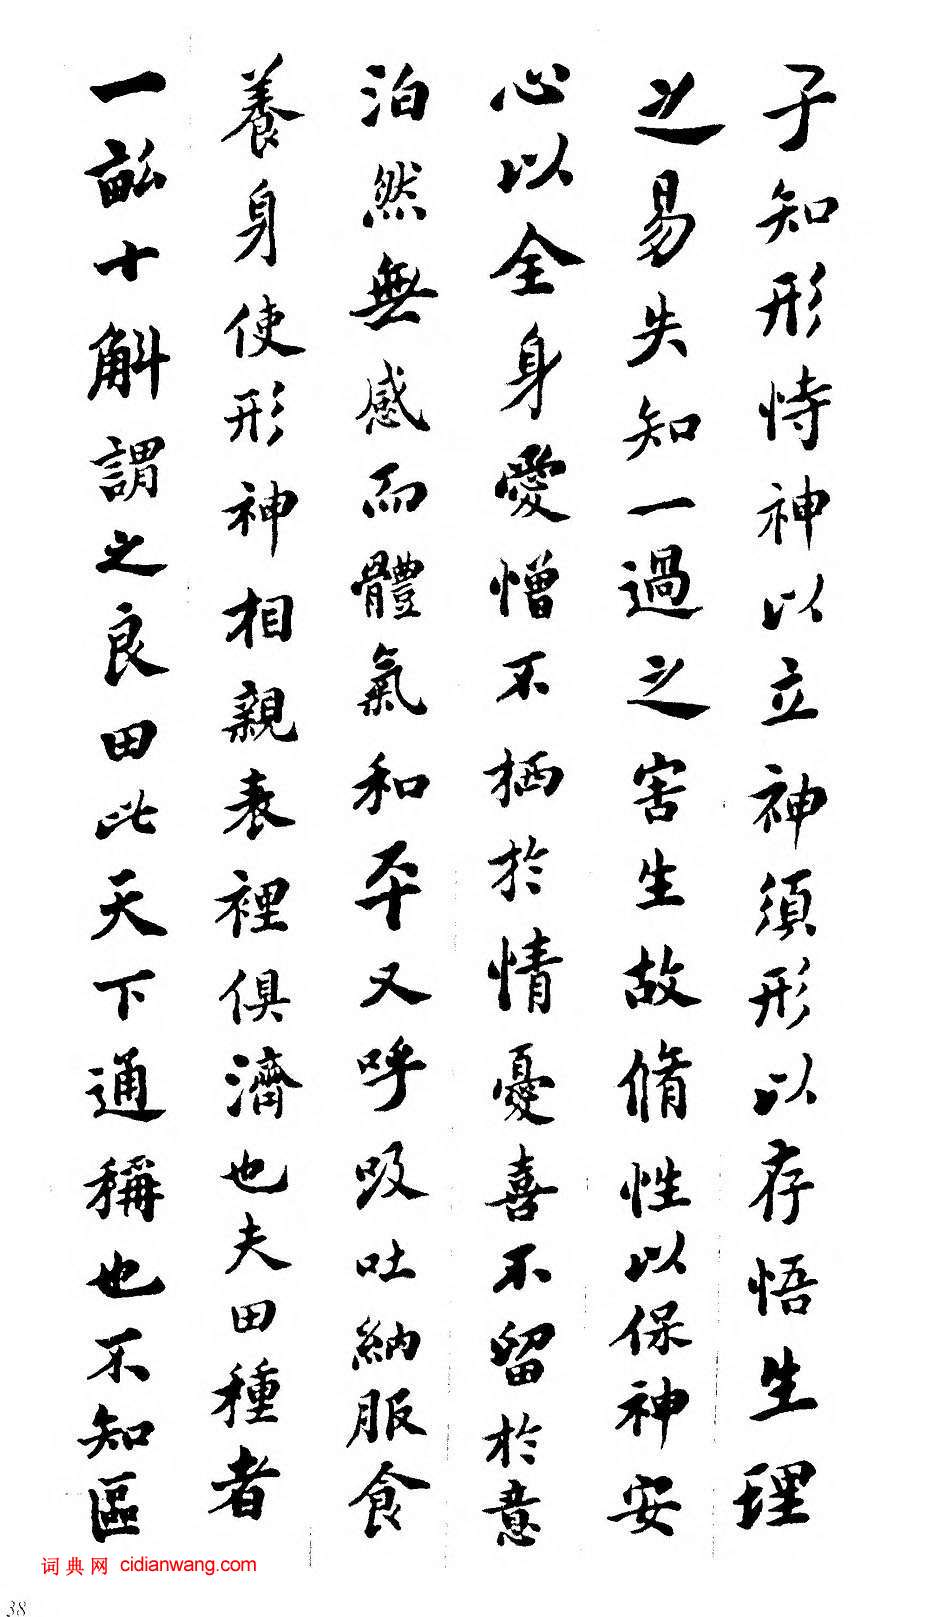 子知形恃神以立神須形以存悟生理
之易失知一過之害生故脩性以保神安
心以全身愛憎不栖於情憂喜不留於意
泊然無感而體氣和平又呼吸吐納服食
養身使形神相親表裡俱濟也夫田種者
一畝十斛謂之良田此天下通稱也不知區
词典网 cidianwang.com
38